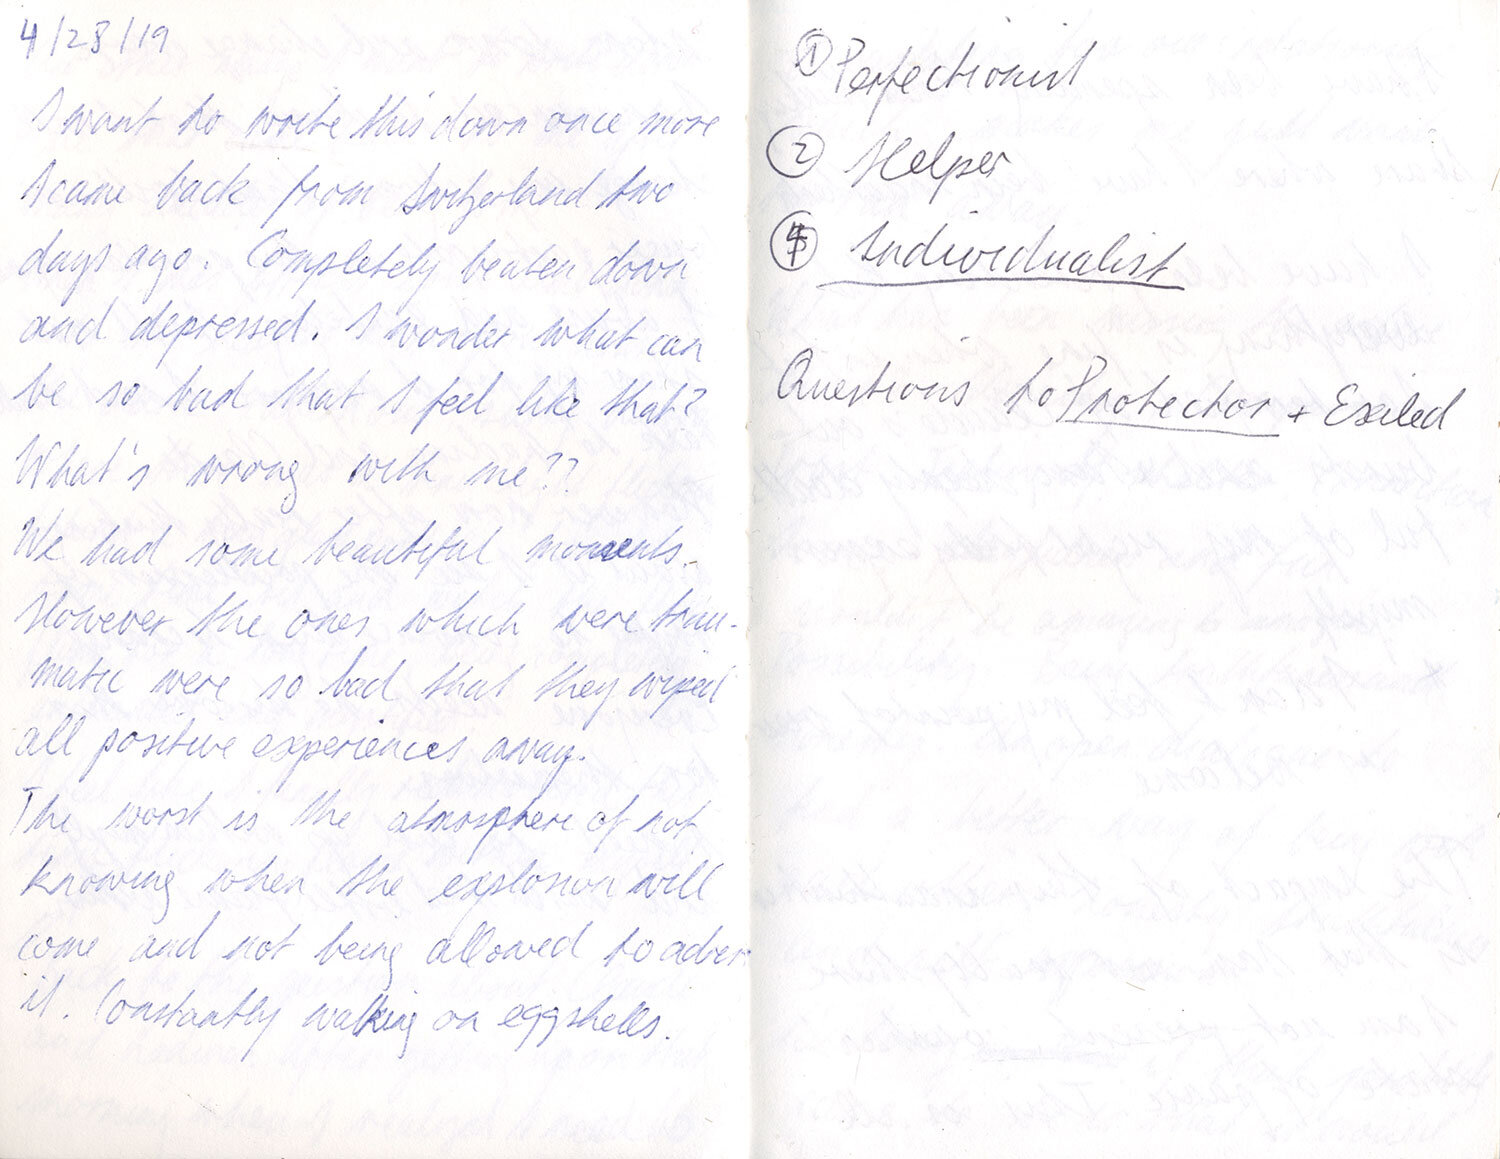 4/28/19
I want to write this down once more
I came back from Switzerland two
days ago. Completely beaten down
and depressed. I wonder what can
be so bad that I feel like that?
What's wrong with me??
We had some beautiful moments.
However the ones which were trau-
matic were so bad that they wiped
all positive experiences away.
The worst is the atmosphere of not
knowing when the explosion will
come and not being allowed to adver
it. Constantly walking on eggshells.
① Perfectionist
② Helper
④ Individualist
Questions to Protector + Exiled